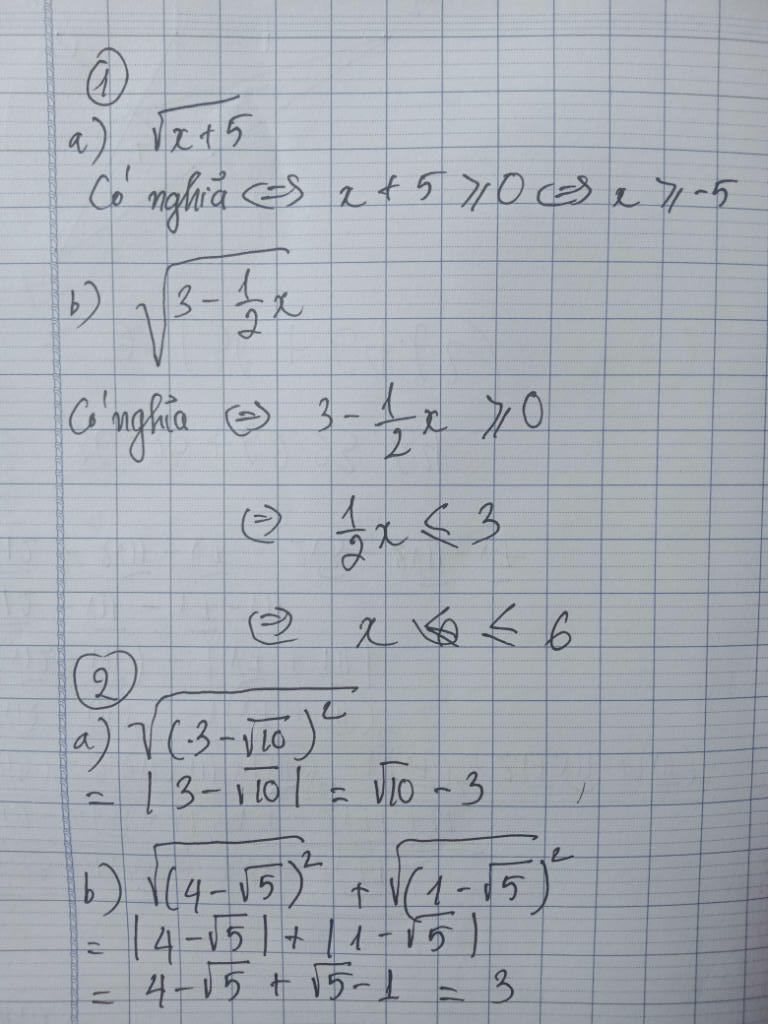 1
a) √(x+5)
Có nghĩa <=> x + 5 ⩾ 0 <=> x ⩾ -5
b) √(3 - 1/2 x)
Có nghĩa <=> 3 - 1/2 x ⩾ 0
<=> 1/2 x ≤ 3
<=> x ≤ 6
2
a) √(3 - √10)²
= |3 - √10| = √10 - 3
b) √(4 - √5)² + √(1 - √5)²
= |4 - √5| + |1 - √5|
= 4 - √5 + √5 - 1 = 3